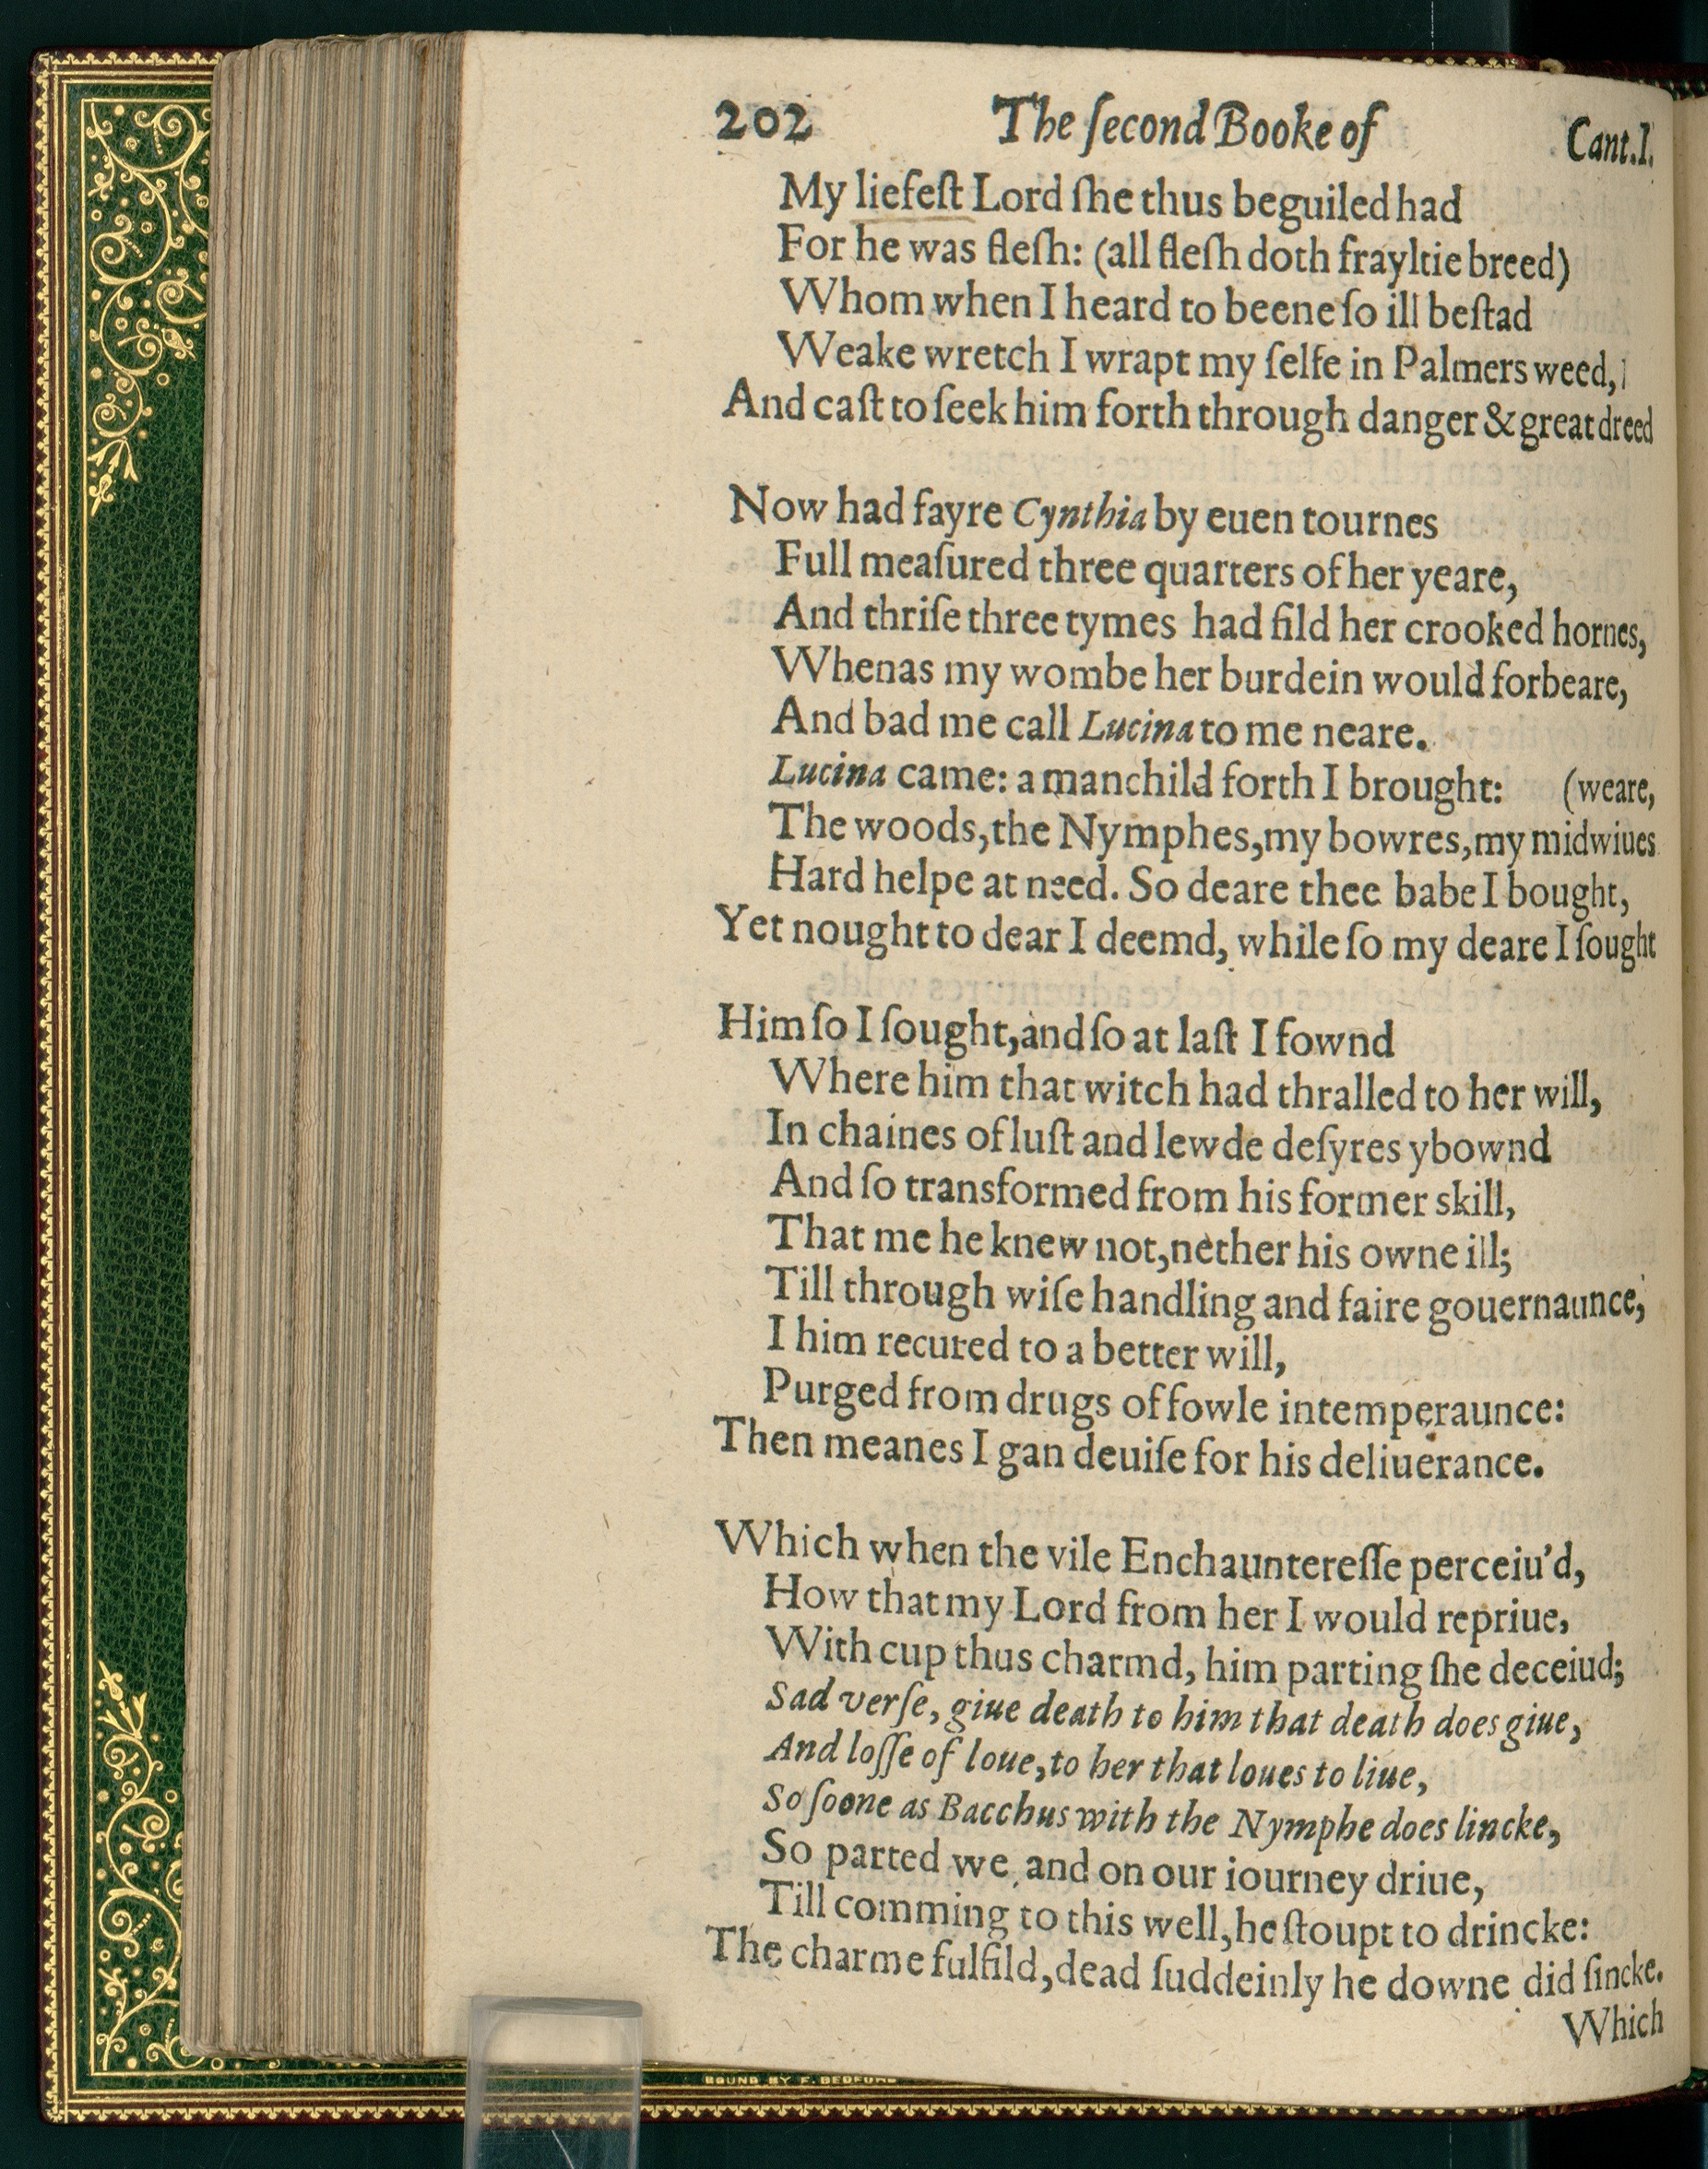 202 The ſecond Booke of Cant.I.
My liefeſt Lord ſhe thus beguiled had
For he was fleſh: (all fleſh doth frayltie breed)
Whom when I heard to beene ſo ill beſtad
Weake wretch I wrapt my ſelfe in Palmers weed,
And caſt to ſeek him forth through danger & great dreed
Now had fayre Cynthia by euen tournes
Full meaſured three quarters of her yeare,
And thriſe three tymes had fild her crooked hornes,
Whenas my wombe her burdein would forbeare,
And bad me call Lucina to me neare.
Lucina came: a manchild forth I brought: (weare,
The woods, the Nymphes, my bowres, my midwiues
Hard helpe at need. So deare thee babe I bought,
Yet nought to dear I deemd, while ſo my deare I ſought
Him ſo I ſought, and ſo at laſt I fownd
Where him that witch had thralled to her will,
In chaines of luſt and lewde deſyres ybownd
And ſo transformed from his former skill,
That me he knew not, nether his owne ill;
Till through wiſe handling and faire gouernaunce,
I him recured to a better will,
Purged from drugs of fowle intemperaunce:
Then meanes I gan deuiſe for his deliuerance.
Which when the vile Enchaunterеſſe perceiu'd,
How that my Lord from her I would repriue,
With cup thus charmd, him parting ſhe deceiud;
Sad verſe, giue death to him that death does giue,
And loſſe of loue, to her that loues to liue,
So ſoone as Bacchus with the Nymphe does lincke,
So parted we and on our iourney driue,
Till comming to this well, he ſtoupt to drincke:
The charme fulfild, dead ſuddeinly he downe did ſincke.
Which
BOUND BY F. BEDFORD